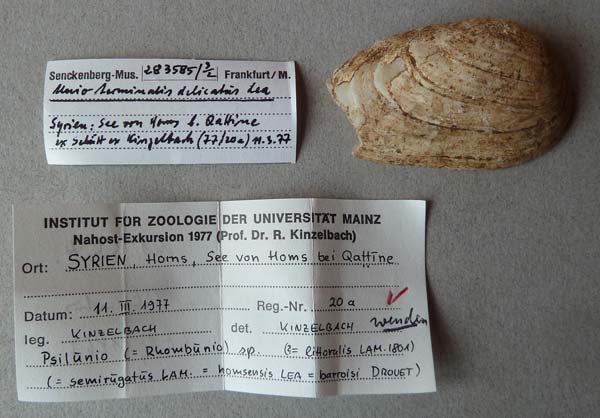 Senckenberg-Mus. 283585/2 Frankfurt/M.
Unio terminalis delicatus Lea
Syrien: See von Homs b. Qattine
ex Schütt ex Kinzelbach (77/20a) 11.3.77
INSTITUT FÜR ZOOLOGIE DER UNIVERSITÄT MAINZ
Nahost-Exkursion 1977 (Prof. Dr. R. Kinzelbach)
Ort: SYRIEN, Homs, See von Homs bei Qaṭṭīne
Datum: 11. III. 1977 Reg.-Nr. 20 a ✓
leg. KINZELBACH det. KINZELBACH wenden
Psilūnio (= Rhombūnio) sp. (?= littoralis LAM. 1801)
(= semirūgatūs LAM. = homsensis LEA = barroisi DROUET)